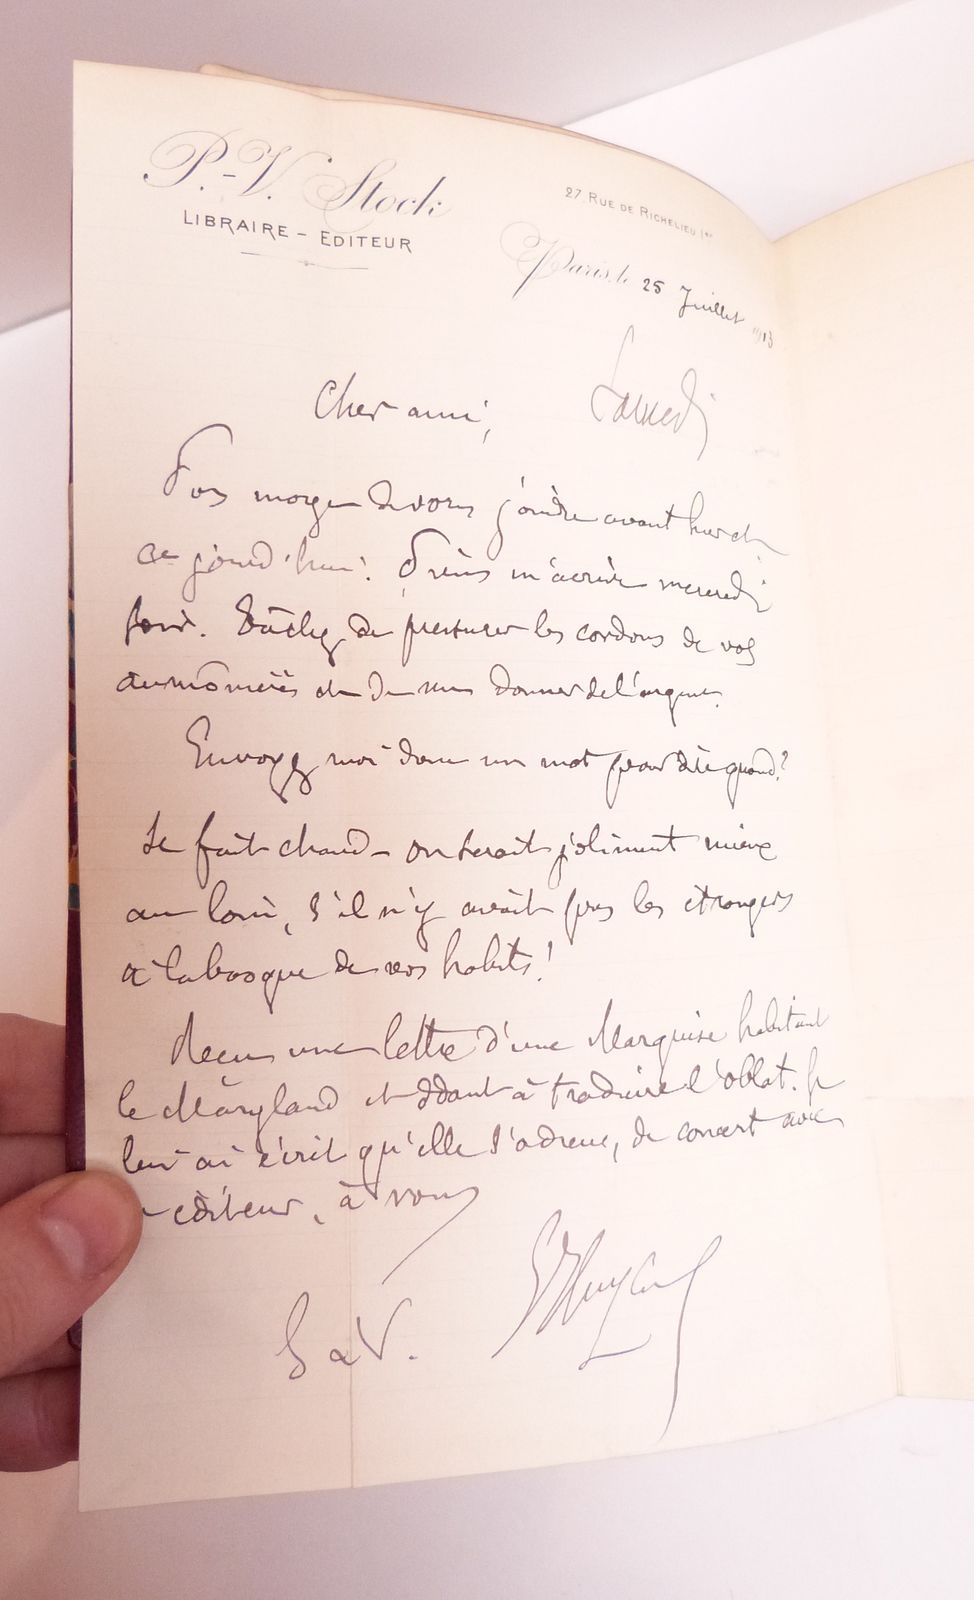 P.-V. Stock
LIBRAIRE - EDITEUR
27 RUE DE RICHELIEU 1er
Paris, le 25 Juillet 1913
Samedi
Cher ami,
Pas moyen de vous joindre avant hier et
ce jourd'hui. Tiens m'écrire mercredi
soir. Tâchez de pressurer les cordons de vos
aumônières et de me donner de l'argent.
Envoyez moi donc un mot pour dire quand?
Il fait chaud - on serait joliment mieux
au loin, s'il n'y avait pas les étrangers
à la basque de vos habits!
Recu une lettre d'une Marquise habitant
le Maryland et ddant à traduire l'Oblat. Je
lui ai écrit qu'elle s'adresse, de concert avec
éditeur, à vous
B à V.
GHuysmans